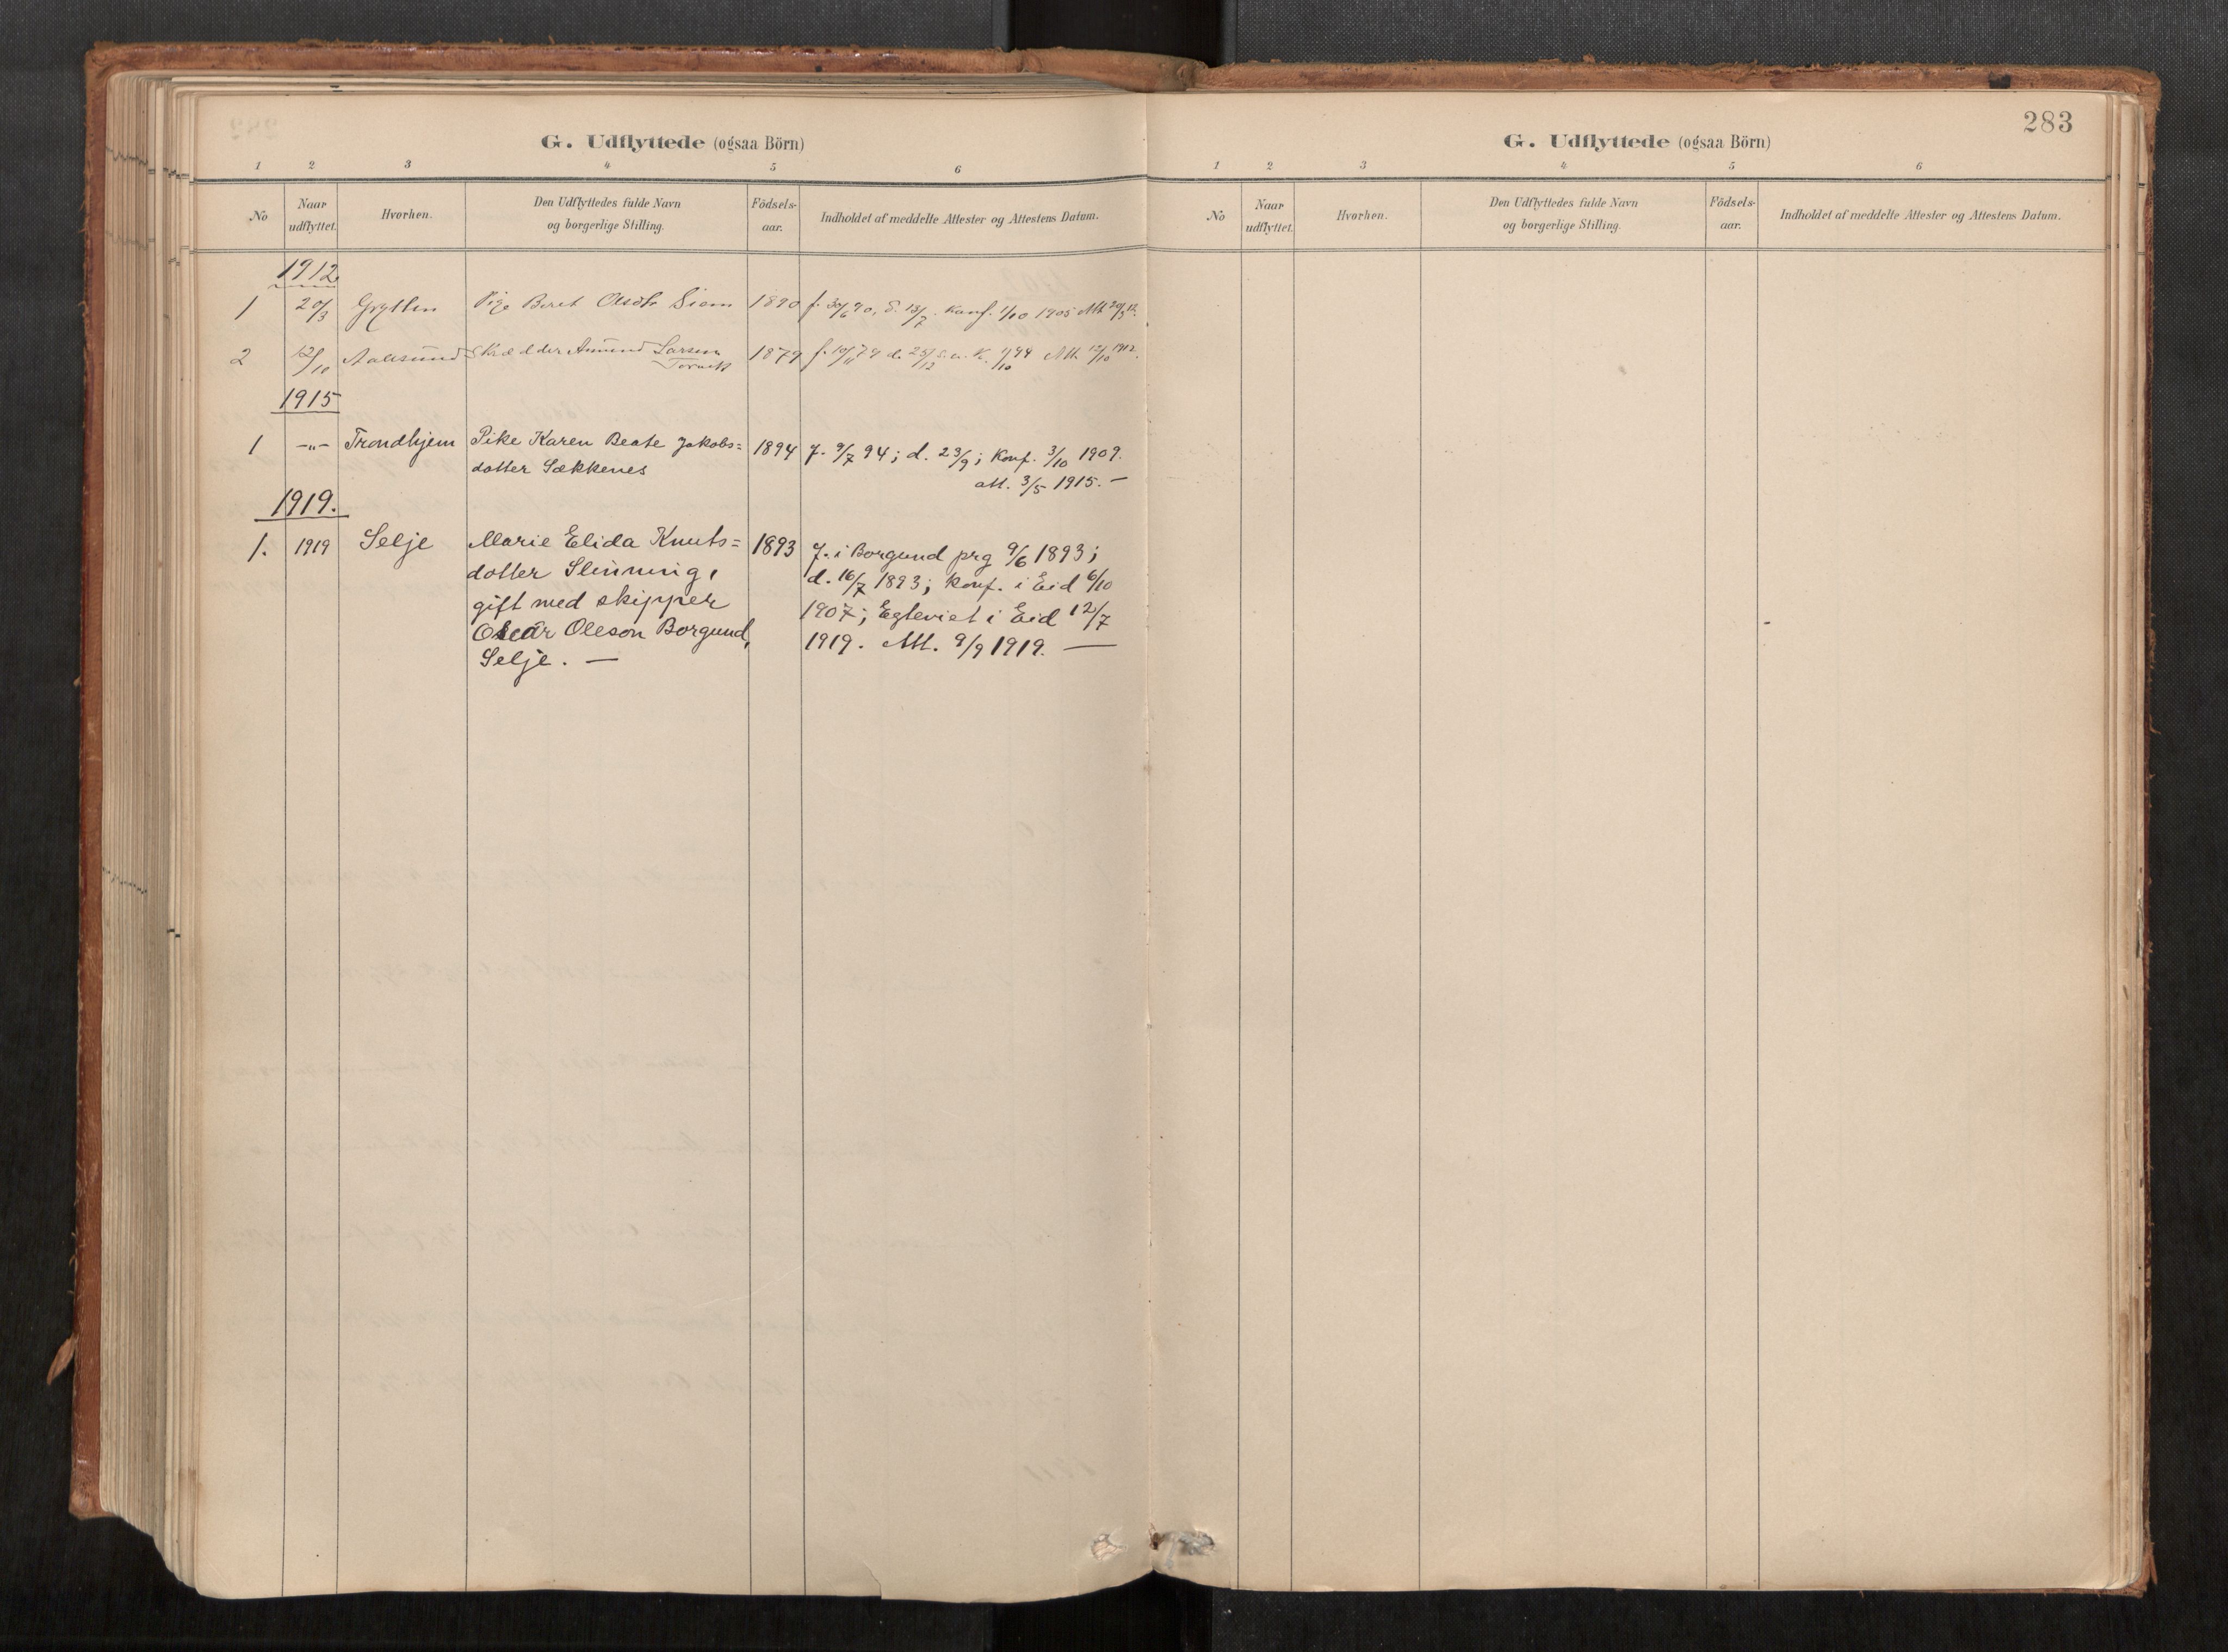 G. Udflyttede (ogsaa Börn)
1 2 3 4 5 6
No
Naar udflyttet.
Hvorhen.
Den Udflyttedes fulde Navn og borgerlige Stilling.
Födsels-aar.
Indholdet af meddelte Attester og Attestens Datum.
1912
1 20/3 Grytten Pige Beret Olsdtr Siem 1890 f. 30/6 90, d. 13/7. Konf. 1/10 1905 Att. 20/3 12.
2 12/10 Aalesund Skrædder Amund Larsen 1879 f. 10/11 79 d. 25/12 s.a. K. 1/10 94 Att. 12/10 1912.
Torvik
1915
1 -"- Trondhjem Pike Karen Beate Jakobs= 1894 f. 9/7 94; d. 23/9; Konf. 3/10 1909.
dotter Sækkenes att. 3/5 1915. —
1919.
1. 1919 Selje Marie Elida Knuts= 1893 f. i Borgund prg 9/6 1893;
dotter Slinning, d. 16/7 1893; konf. i Eid 6/10
gift med skipper 1907; Egteviet i Eid 12/7
Oscar Oleson Borgund, 1919. Att. 9/9 1919. —
Selje. —
283
G. Udflyttede (ogsaa Börn)
1 2 3 4 5 6
No
Naar udflyttet.
Hvorhen.
Den Udflyttedes fulde Navn og borgerlige Stilling.
Födsels-aar.
Indholdet af meddelte Attester og Attestens Datum.